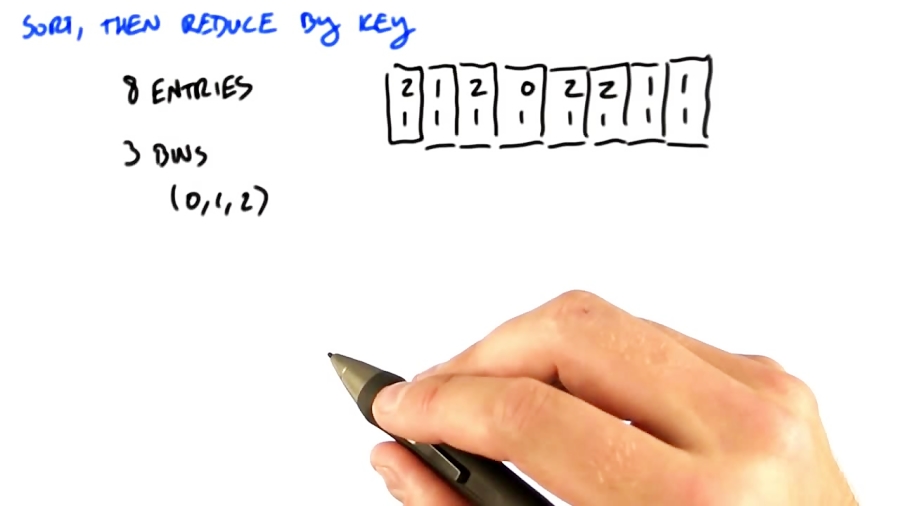 SORT, THEN REDUCE BY KEY
8 ENTRIES
3 BINS
(0,1,2)
2 1 2 0 2 2 1 1
1 1 1 1 1 1 1 1